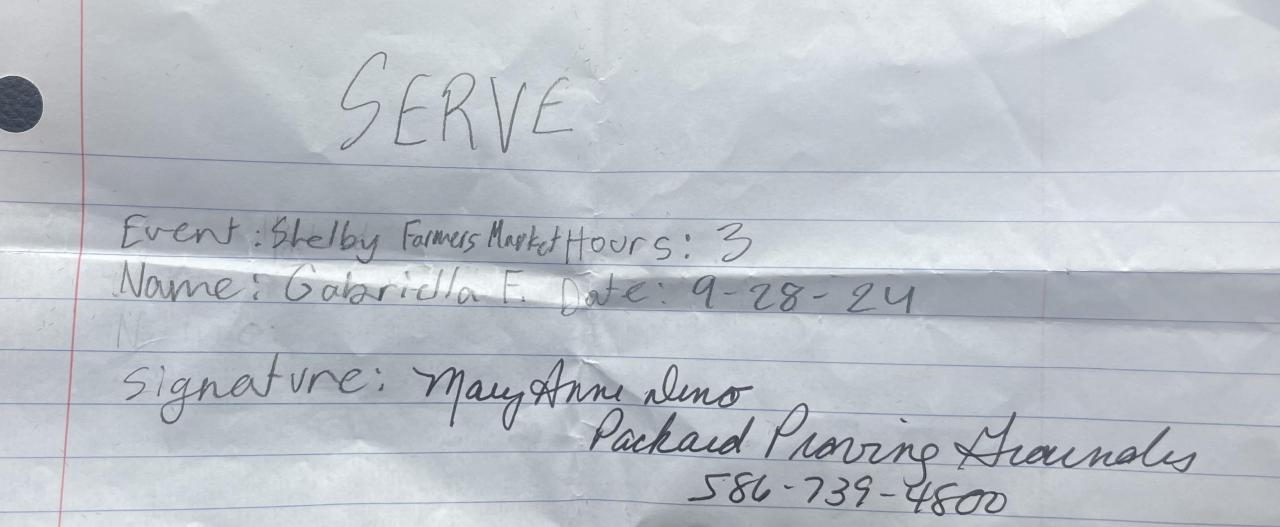 SERVE
Event: Shelby Farmers Market Hours: 3
Name: Gabriella F. Date: 9-28-24
Signature: Mary Anne Demo
Packard Proving Grounds
586-739-4800